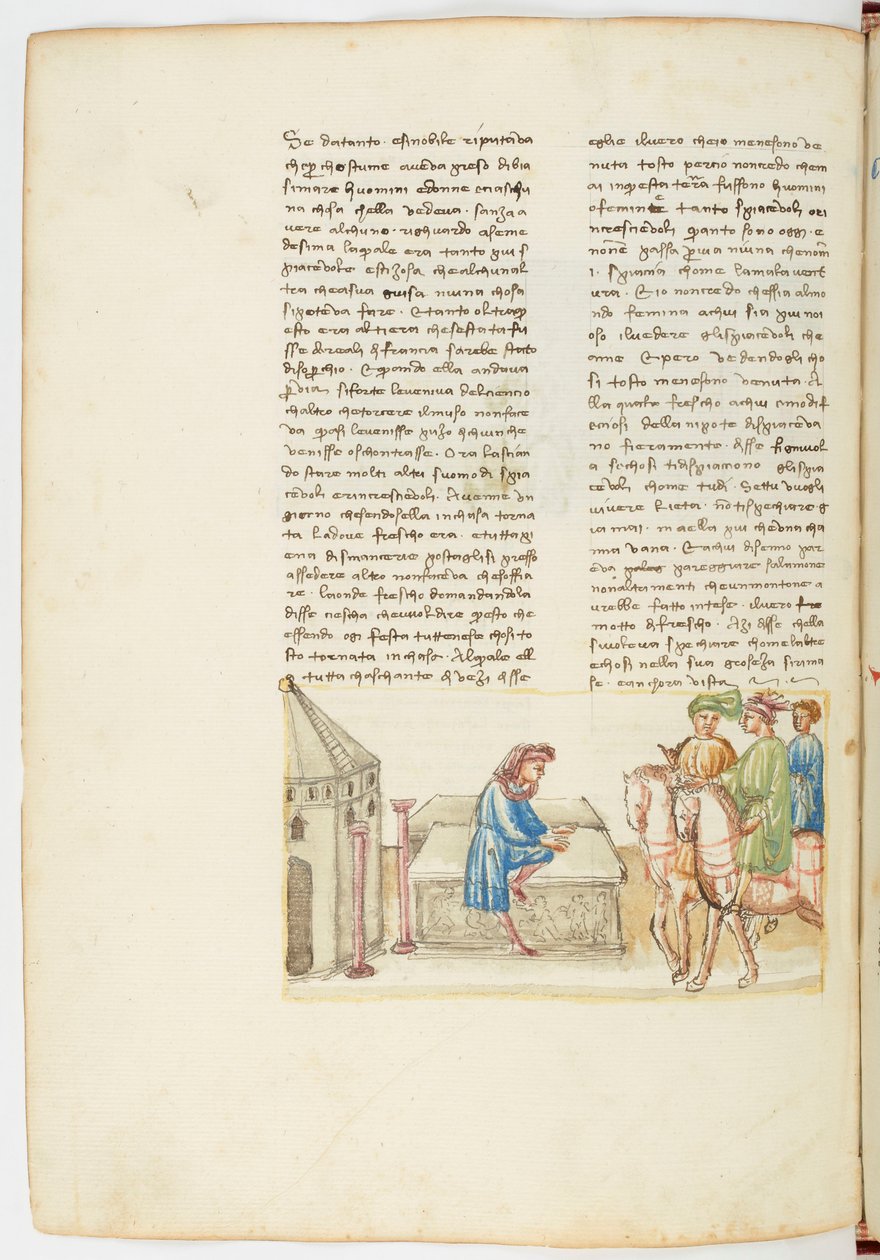 Se datanto · esinobile riputava
che p(er) chostume aveva preso dibia
simare huomini edonne eciaschu
na chosa chella vedeva · sanza a
vere alchuno · righuardo aseme
desima laquale era tanto piu s
piacevole estizosa chealchunal
tra cheasua guisa niuna chosa
sipoteva fare · Etanto oltraqu
esto era altiera chesestata fu
sse dereali di francia sarebe stato
disoperchio · Equando ella andava
p(er) via siforte leveniva delciencio
chaltro chetorcere ilmuso nonface
va quasi levenisse puzo dichiunche
venisse oschontrasse · Ora lascian
do stare molti altri suomodi spia
cevoli erincrescievoli · Avenne un
giorno chesendosella inchasa torna
ta ladove frescho era · etutta pi
ena dismancerie postaglisi presso
assedere altro nonfaceva chesoffia
re · laonde frescho domandandola
disse ciescha chevuoldire questo che
essendo ogi festa tuttenese chosi to
sto tornata inchasa · Alquale ell
a tutta chaschante di vezi disse
eglie ilvero cheio menesono ve
nuta tosto perciò noncredo chem
ai inquesta terra fussono huomini
ofemine tanto spiacevoli eri
ncrescievoli quanto sono oggi · e
nonne passa p(er) via niuna chenom
i · spiacia chome lamala vent
ura · Eio noncredo chessia almo
ndo femina achui sia piu noi
oso ilvedere glispiacevoli che
ame Epero vedendogli cho
si tosto menesono venuta · A
lla quale frescho achui emodi f
ecciosi della nipote dispiaceva
no fieramente · disse figniuol
a sechosi tidispiaciono glispia
cevoli chome tudi · Settu vuogli
vivere lieta · no(n) tispechiare g
iamai · maella piu cheuna cha
nna vana · Eachui disenno par
eva pareggiare salamone
nonaltrimenti cheunmontone a
urebbe fatto intese · ilvero
motto difrescho · Azi disse chella
sivoleva spechiare chomelaltre
echosi nella sua groseza sirima
se · eanchora vista